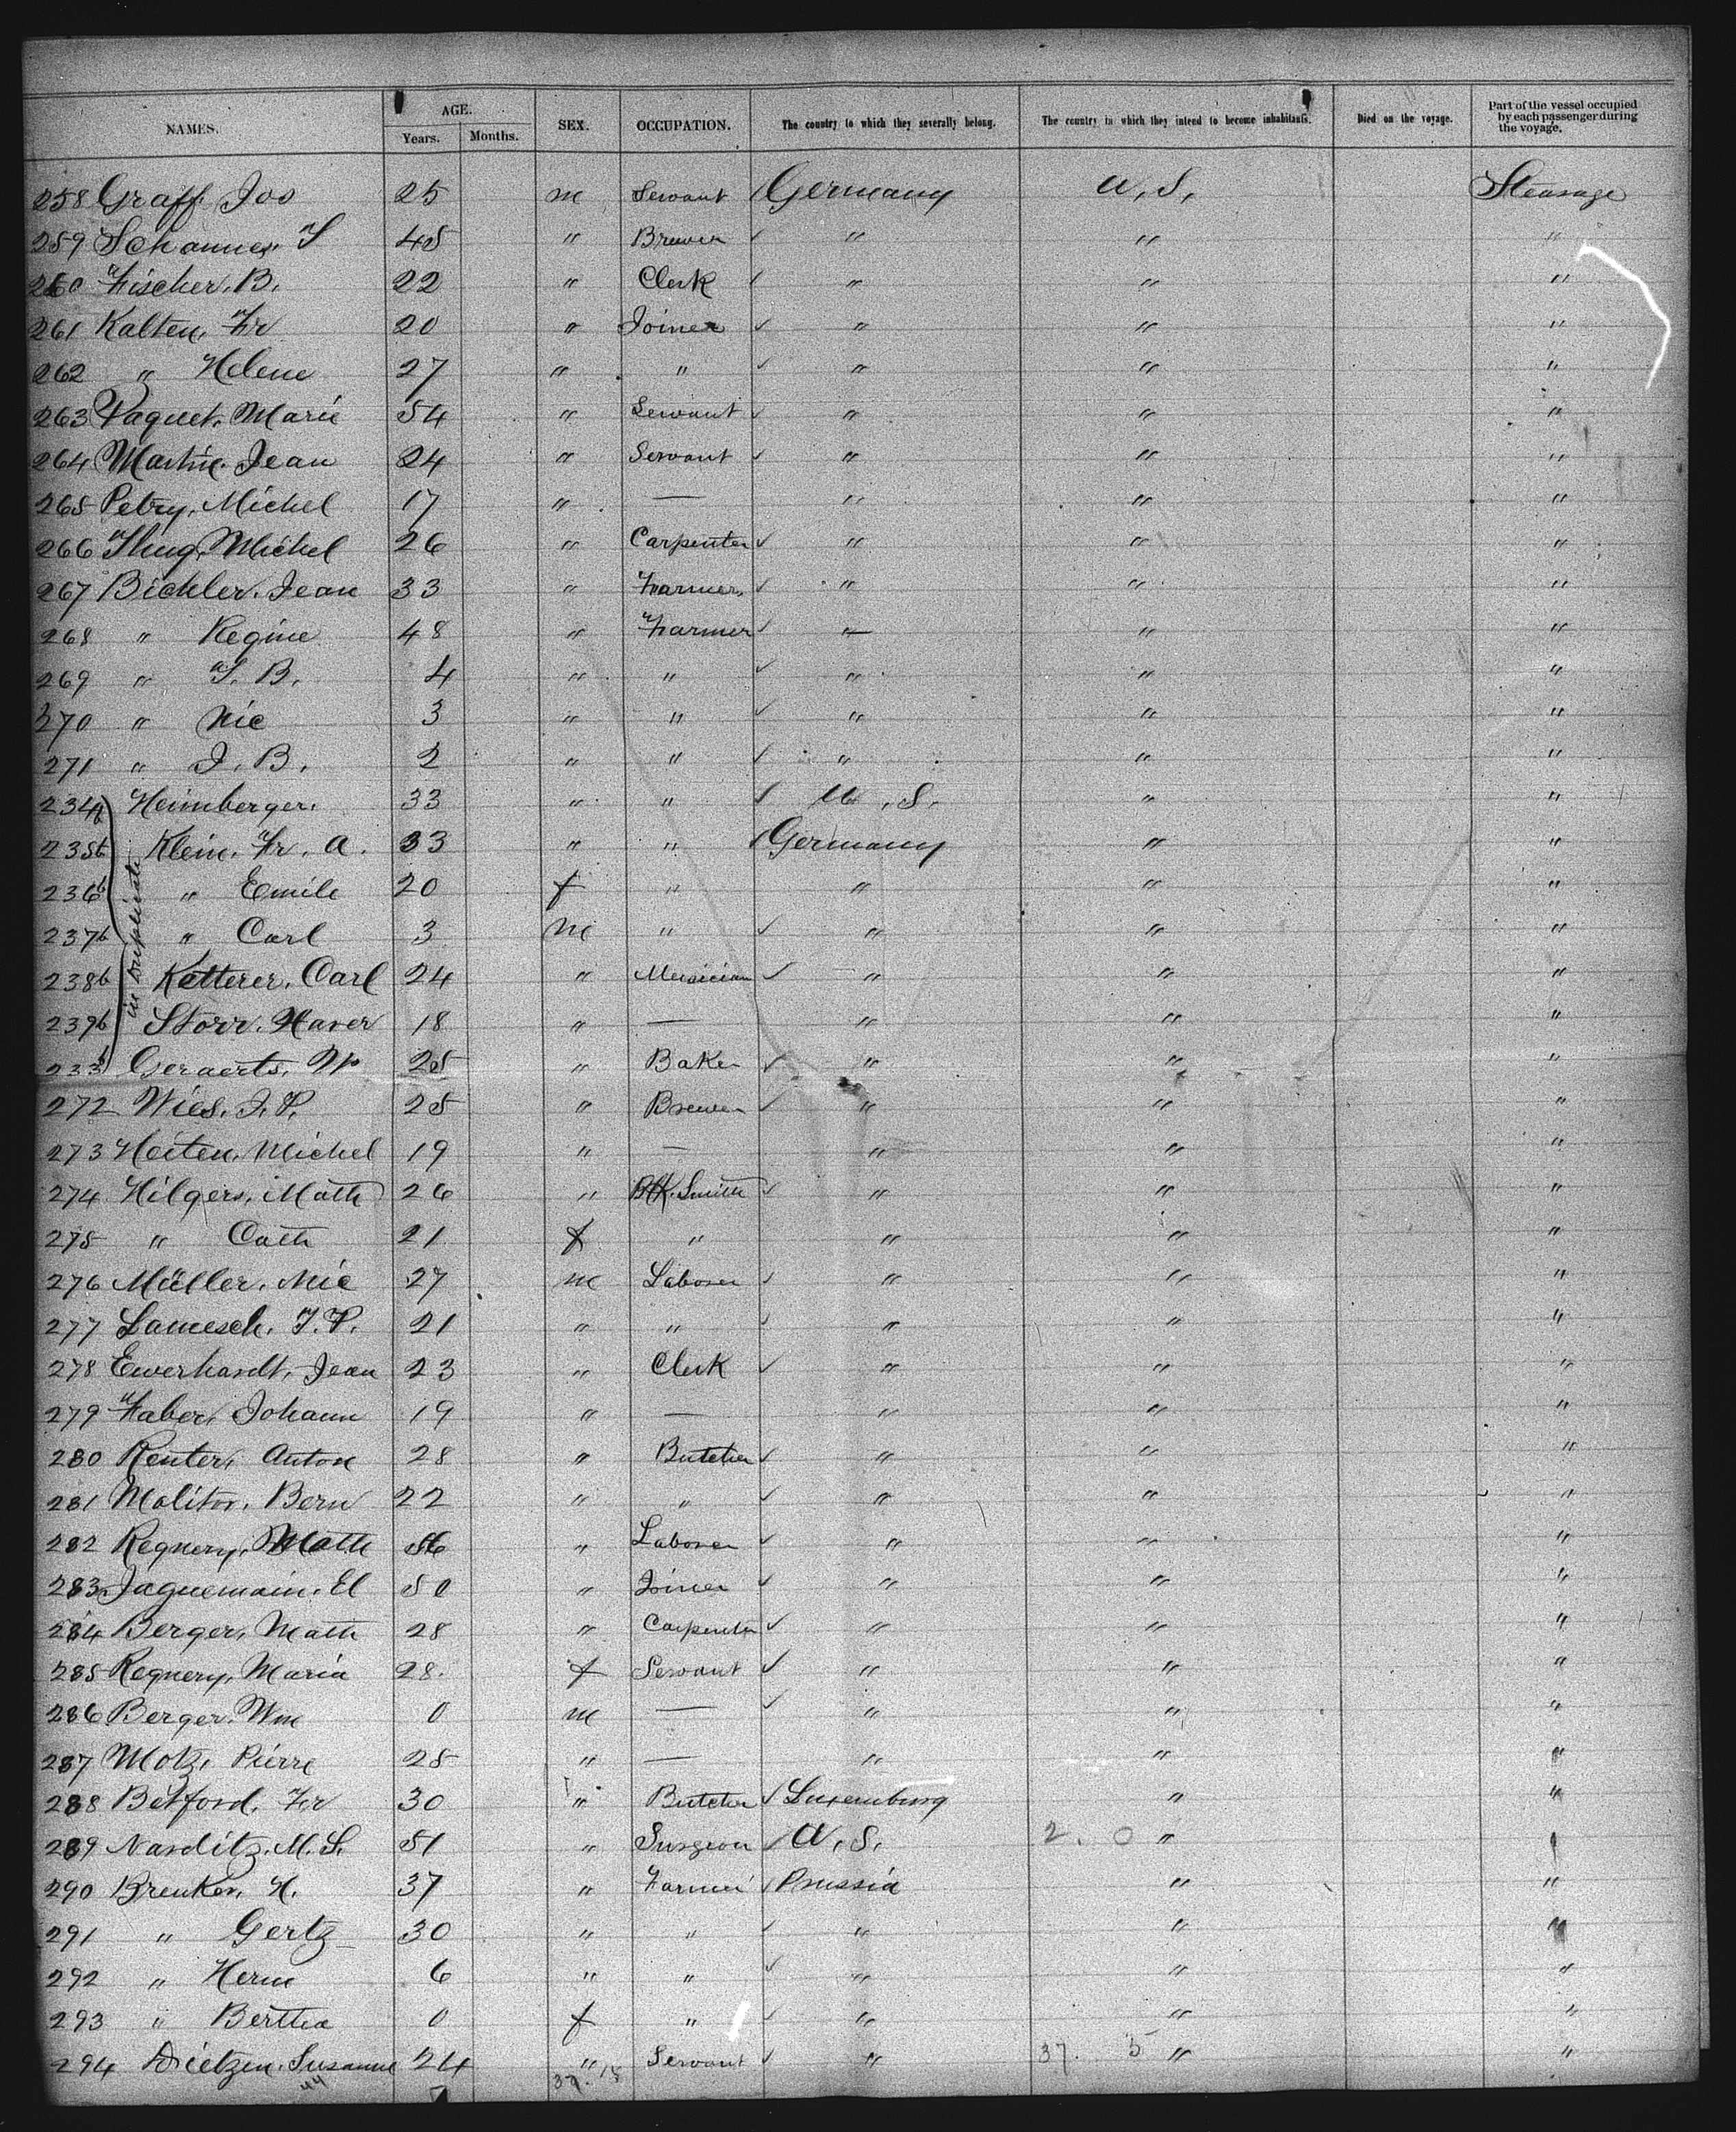 NAMES. AGE. SEX. OCCUPATION. The country to which they severally belong. The country in which they intend to become inhabitants. Died on the voyage. Part of the vessel occupied by each passenger during the voyage.
Years. Months.
258 Graff. Jos 25 m Servant ✓ Germany U. S. Steerage
259 Schannes, 45 " Brewer ✓ " " "
260 Fischer. B. 22 " Clerk ✓ " " "
261 Kalten, Fr 20 " Joiner ✓ " " "
262 " Helene 27 " " ✓ " " "
263 Paquet, Marie 54 " Servant ✓ " " "
264 Martin. Jean 24 " Servant ✓ " " "
265 Petry, Michel 17 " — " " "
266 Michel 26 " Carpenter ✓ " " "
267 Bichler. Jean 33 " Farmer ✓ " " "
268 " Regine 48 " Farmer ✓ " " "
269 " B. 4 " " ✓ " " "
270 " Nic 3 " " ✓ " " "
271 " J. B. 2 " " ✓ " " "
234b Heimberger. 33 " " ✓ U. S. " "
235b Klein. Fr. A. 33 " " ✓ Germany " "
236b " Emile 20 f " " " "
237b " Carl 3 m " ✓ " " "
238b Ketterer. Carl 24 " Musician ✓ " " "
239b Storr. Xaver 18 " — " " "
233b Geraerts, 25 " Baker ✓ " " "
in duplicate
272 Wies. J. P. 25 " Brewer ✓ " " "
273 Heiten, Michel 19 " — " " "
274 Hilgers, Math 26 " Blk. Smith ✓ " " "
275 " Cath 21 f " " " "
276 Müller. Nic 27 m Laborer ✓ " " "
277 Lamesch. J. P. 21 " " ✓ " " "
278 Ewerhardt, Jean 23 " Clerk ✓ " " "
279 Faber, Johann 19 " — " " "
280 Reuter, Anton 28 " Butcher ✓ " " "
281 Molitor. Bern 22 " " ✓ " " "
282 Regnery, Math 56 " Laborer ✓ " " "
283 Jaquemain. El 50 " Joiner ✓ " " "
284 Berger, Math 28 " Carpenter ✓ " " "
285 Regnery, Maria 28 f Servant ✓ " " "
286 Berger. Wm 0 m — ✓ " " "
287 Motz, Pierre 25 " — " " "
288 Betford, Fr 30 " Butcher ✓ Luxemburg " "
289 Narditz. M. L. 51 " Surgeon ✓ U. S. 2. 0 "
290 Breuker, H. 37 " Farmer ✓ Prussia " "
291 " Gertz 30 " " ✓ " " "
292 " Herm 6 " " ✓ " " "
293 " Bertha 0 f " ✓ " " "
294 Dietzen. Susanne 24 " Servant ✓ " 37. 5 " "
44 39. 15